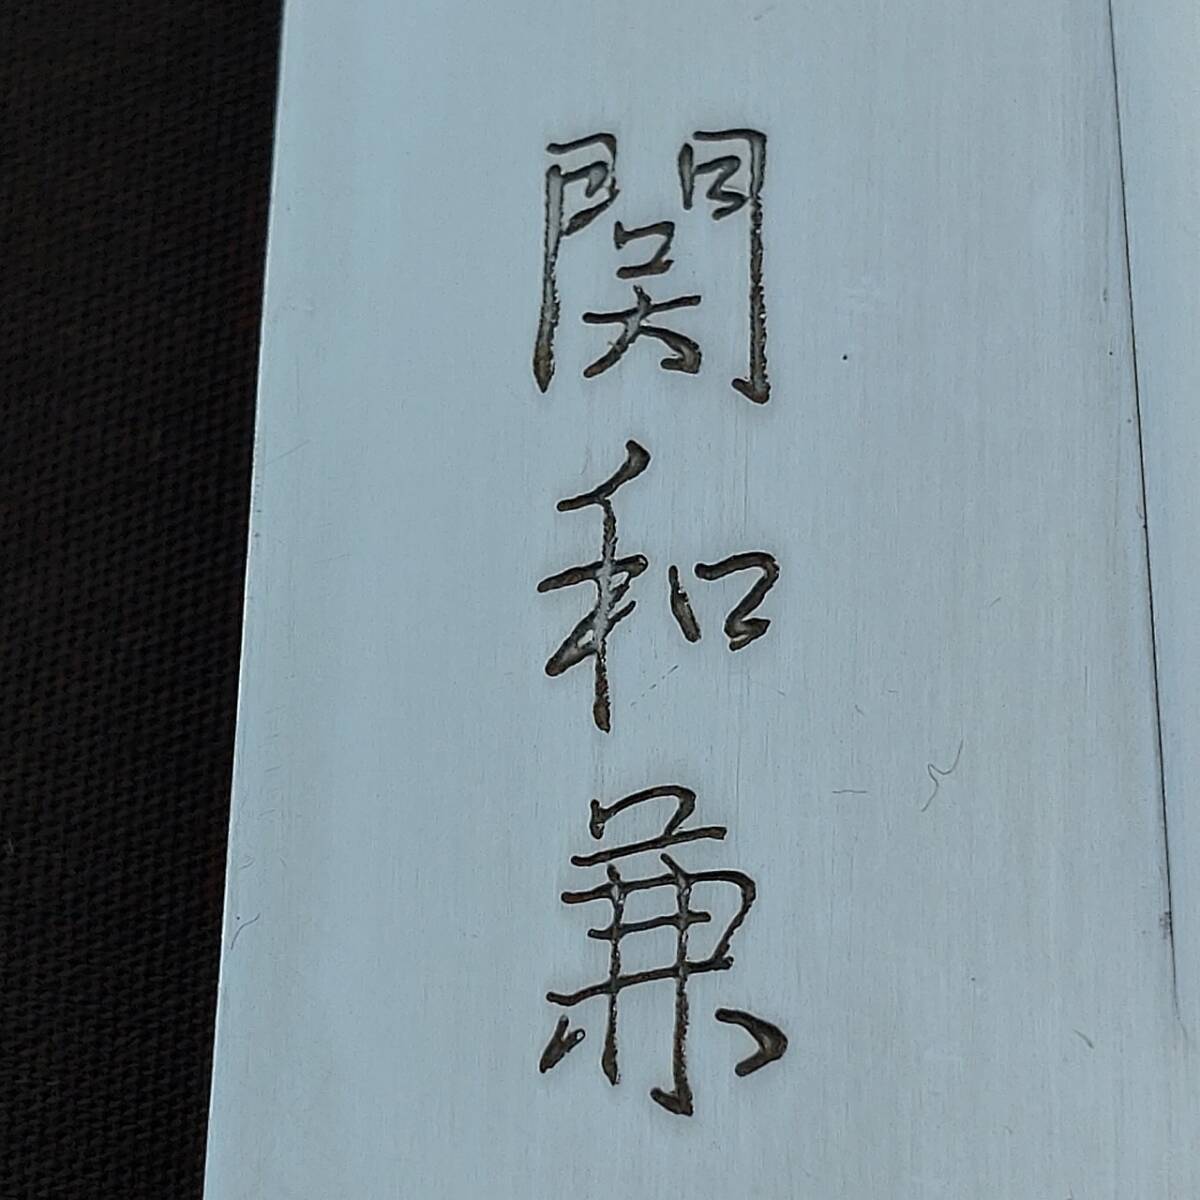 関和兼